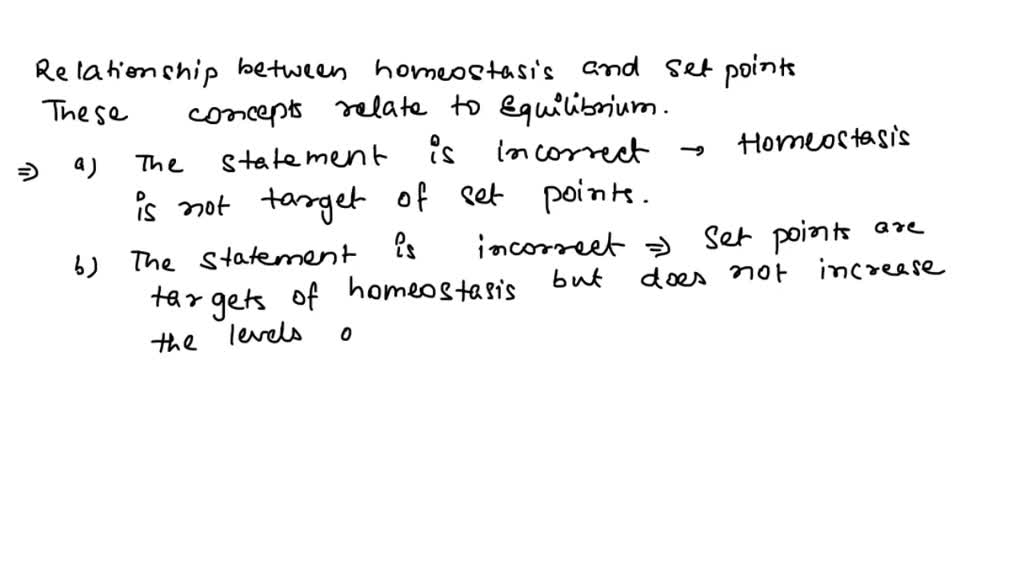 Relationship between homeostasis and set points
These concepts relate to Equilibrium.
⇒ a) The statement is incorrect → Homeostasis
is not target of set points.
b) The statement is incorrect ⇒ Set points are
targets of homeostasis but does not increase
the levels o